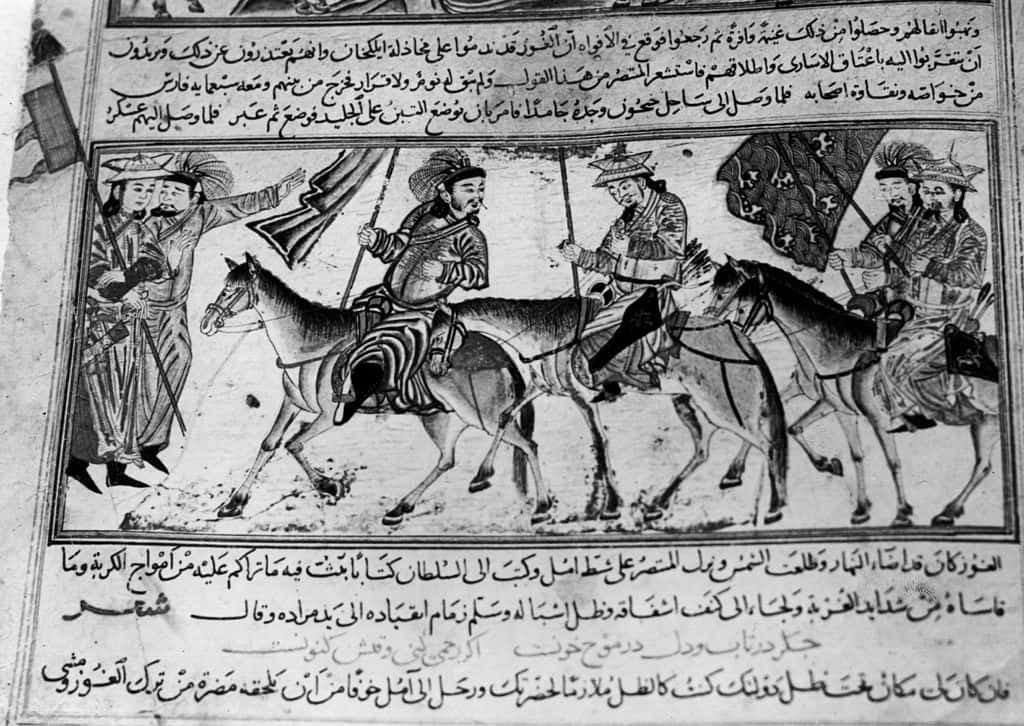 ونهبوا اثقالهم وحصلوا من ذلك غنيمة وافرة ثم رجعوا فوقع في الافواه ان الغوز قد ندموا على مخاذلة ايلكخان وانهم يعتذرون عن ذلك ويريدون
ان يتقربوا اليه باعتاق الاسارى واطلاقهم فاستشعر المنتصر من هذا القول ولم يبق له نوم ولا قرار فخرج من بينهم ومعه سبعماية فارس
من خواصه ونقاوة اصحابه فلما وصل الى ساحل جيحون وجده جامدا فامر بان يوضع التبن على الجليد فوضع ثم عبر فلما وصل اليهم عسكر
الغوز كان قد اضاء النهار وطلعت الشمس ونزل المنتصر على شط امل وكتب الى السلطان كتابا يبث فيه ما تراكم عليه من امواج الكربة وما
قاساه من شدايد الغربة ولجاء الى كنف اشفاقه وظل اشباله وسلم زمام انقياده الى يد مراده وقال شعر
جكر در تاب ودل در موج خونست
فان كان لى مكان تحت ظل دولتك كنت كالظل ملازما لحضرتك ورحل الى آمل خوفا من ان يلحقه مضرة من ترك الغوز ومشى